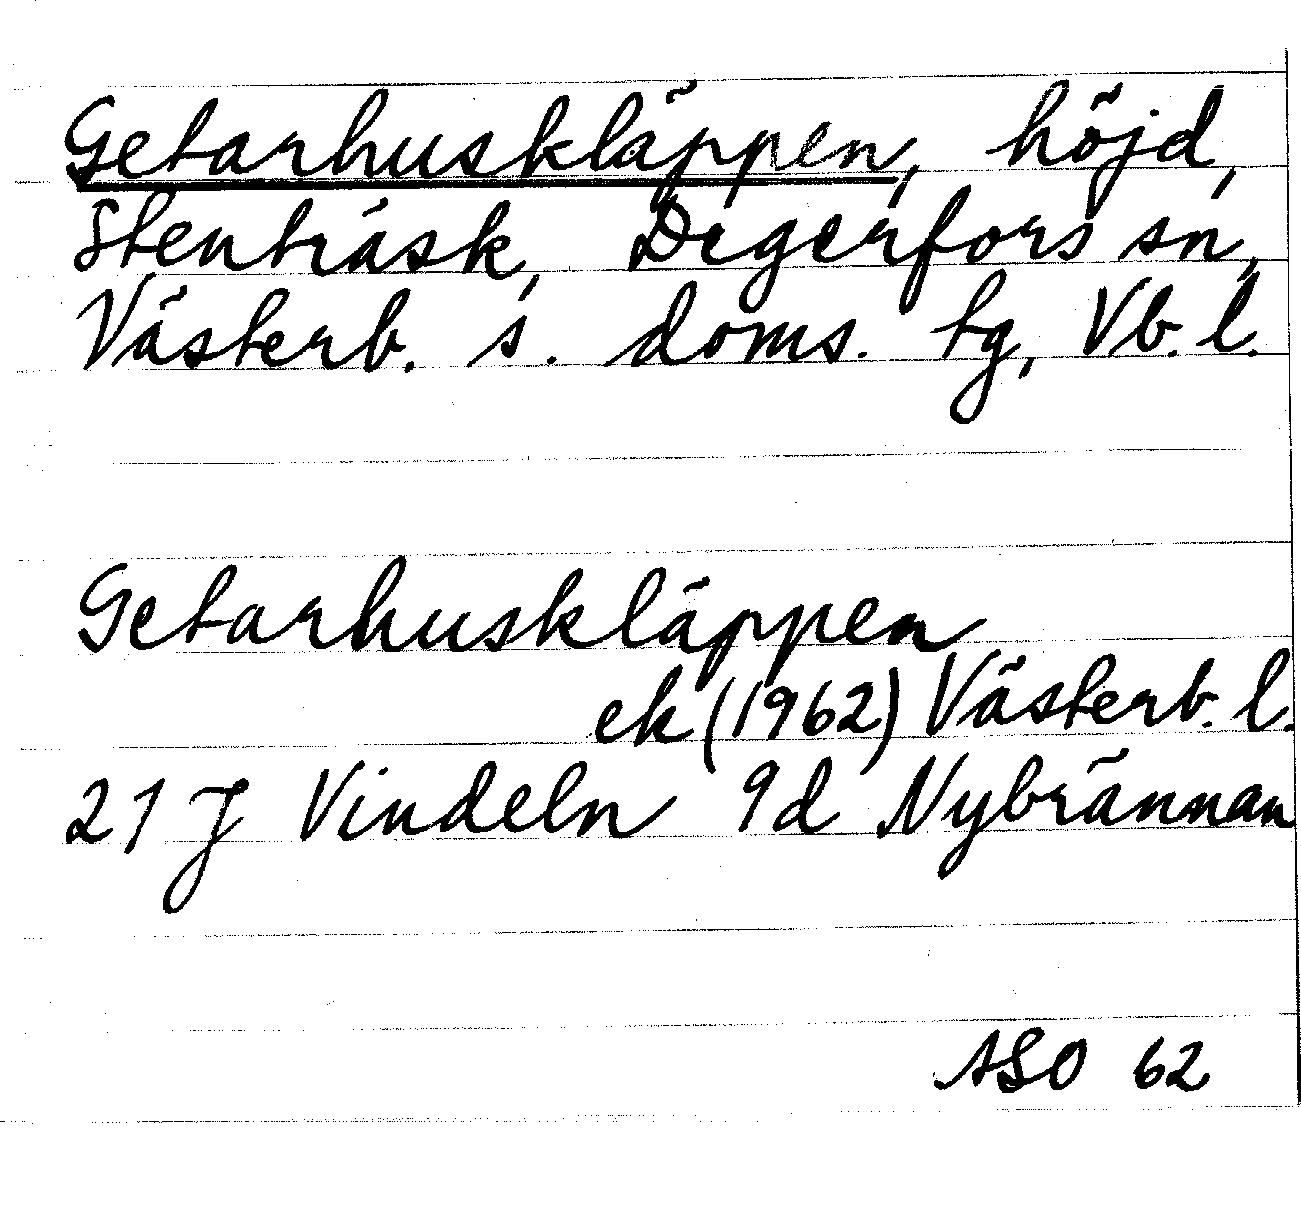 Getarhuskläppen, höjd,
Stenträsk, Degerfors sn,
Västerb. s. doms. tg, Vb. l.
Getarhuskläppen
ek (1962) Västerb. l.
21 J Vindeln 9d Nybrännan
ASO 62